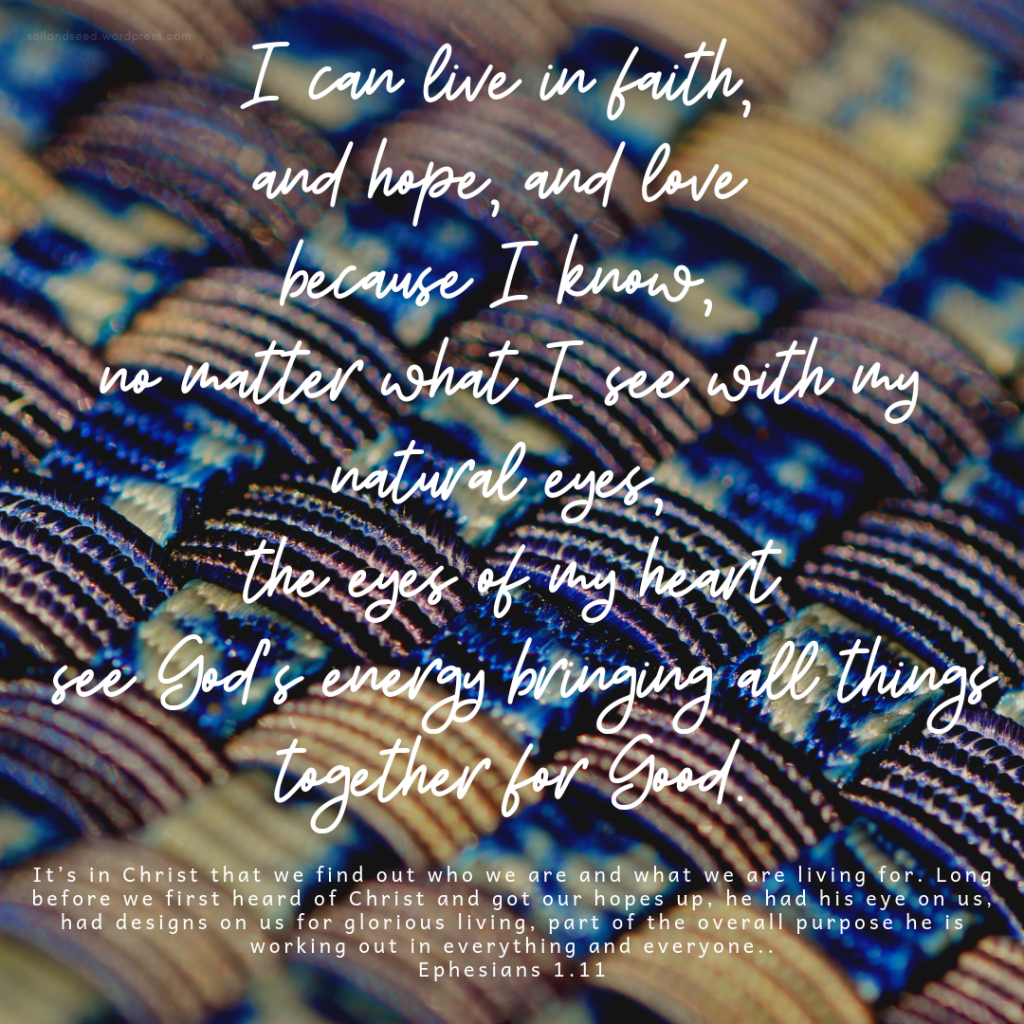 soilandseed.wordpress.com
I can live in faith,
and hope, and love
because I know,
no matter what I see with my
natural eyes,
the eyes of my heart
see God's energy bringing all things
together for Good.
It’s in Christ that we find out who we are and what we are living for. Long
before we first heard of Christ and got our hopes up, he had his eye on us,
had designs on us for glorious living, part of the overall purpose he is
working out in everything and everyone..
Ephesians 1.11